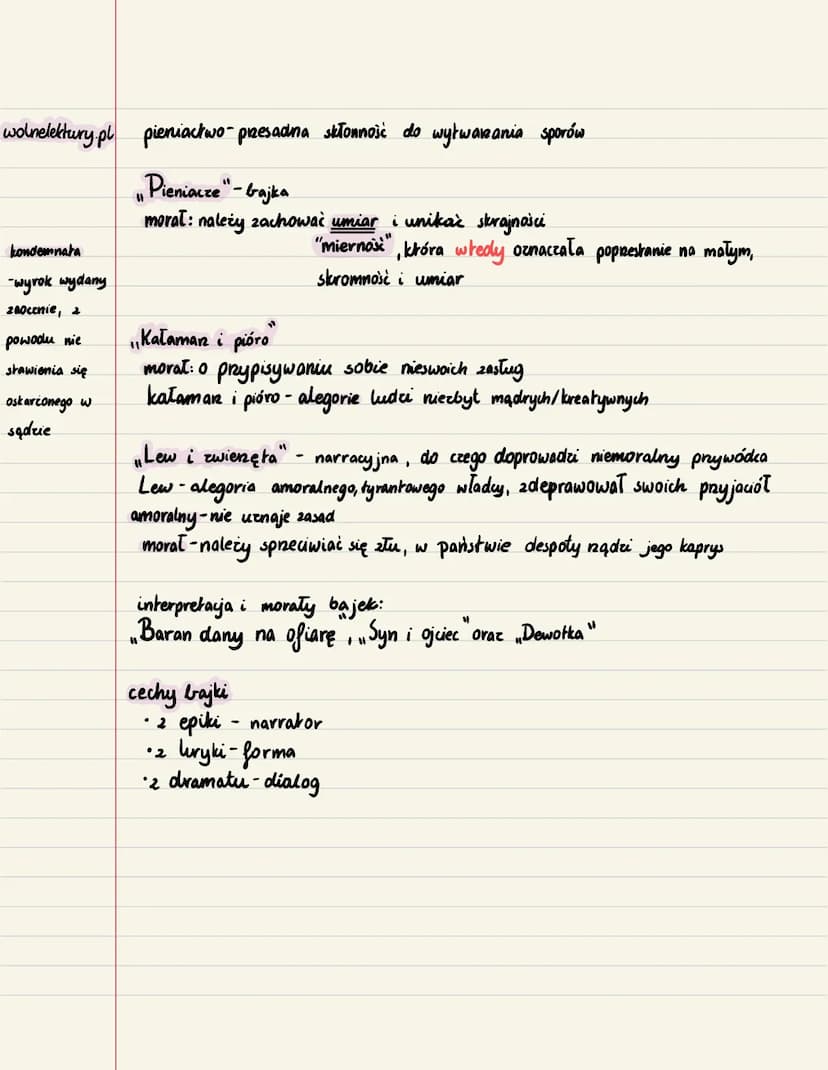 wolnelektury.pl
pieniactwo - przesadna skłonność do wytwarzania sporów
„Pieniacze" - bajka
morał: należy zachować umiar i unikać skrajności
"mierność", która wtedy oznaczała poprzestanie na małym,
skromność i umiar
kondemnata
-wyrok wydany
zaocznie, z
powodu nie
stawienia się
oskarżonego w
sądzie
„Kałamarz i pióro"
morał: o przypisywaniu sobie nieswoich zasług
kałamarz i pióro - alegorie ludzi niezbyt mądrych/kreatywnych
„Lew i zwierzęta" - narracyjna, do czego doprowadzi niemoralny przywódca
Lew - alegoria amoralnego, tyrantowego władcy, zdeprawował swoich przyjaciół
amoralny - nie uznaje zasad
morał - należy sprzeciwiać się złu, w państwie despoty rządzi jego kaprys
interpretacja i morały bajek:
„Baran dany na ofiarę", „Syn i ojciec" oraz „Dewotka"
cechy bajki
• z epiki - narrator
• z liryki - forma
• z dramatu - dialog